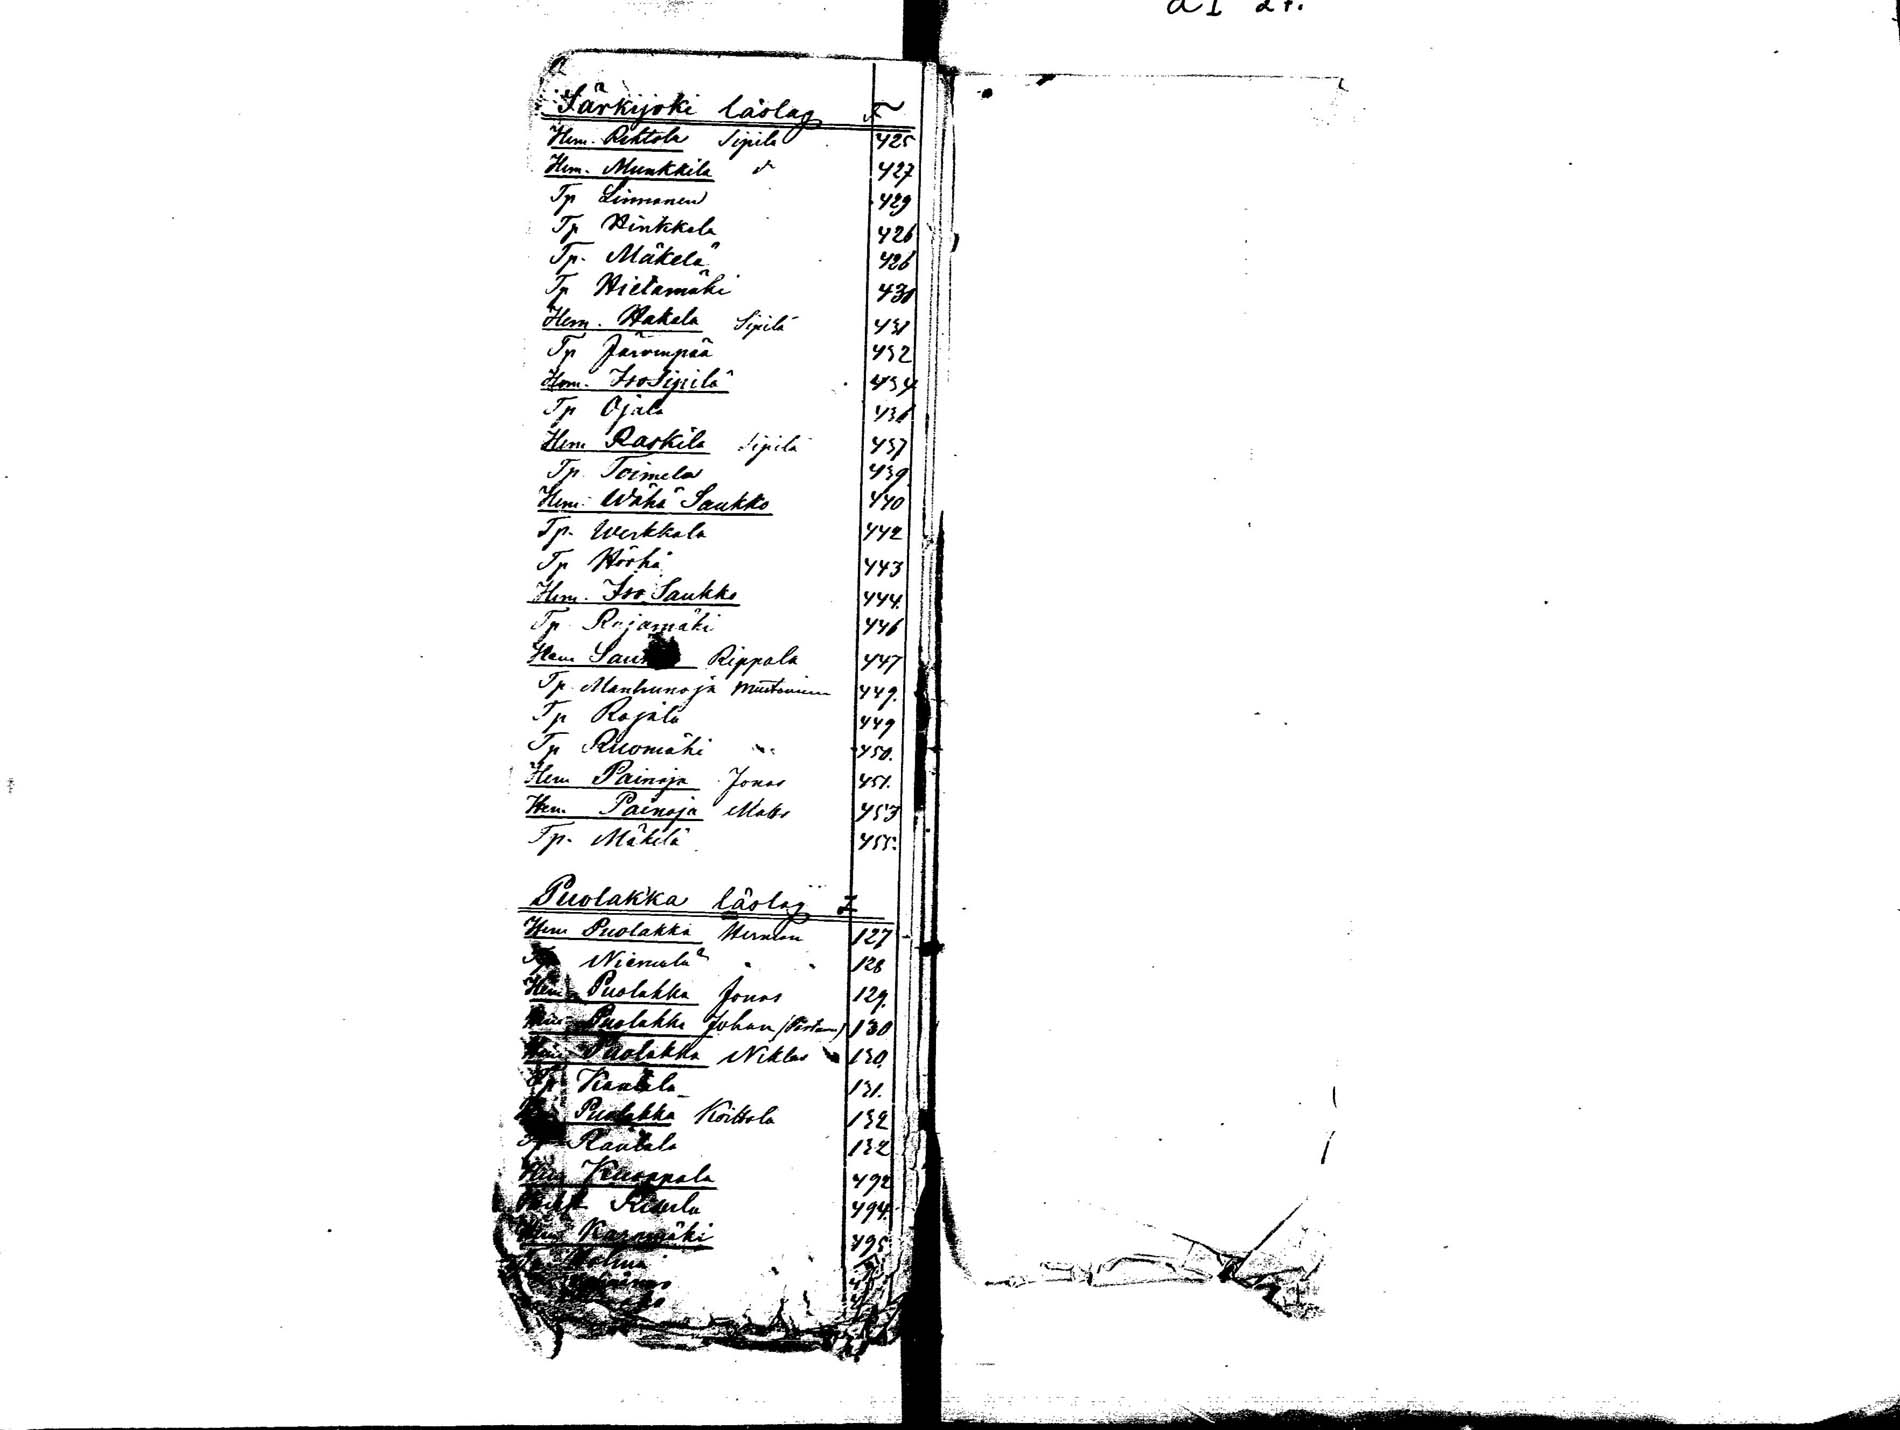 Särkijoki läslag F
Hem. Rehtola Sipilä 425
Hem. Munkkila d 427
Tp Linnanen 429
Tp Hinkkala 426
Tp. Mäkelä 426
Tp Hietamäki 430
Hem. Hakala Sipilä 431
Tp Järvenpää 432
Hem. Iso Sipilä 434
Tp Ojala 436
Hem Raskila Sipilä 437
Tp. Toimela 439
Hem. Wähä Saukko 440
Tp. Werkkala 442
Tp Hörhä 443
Hem. Iso Saukko 444.
Tp Rajamäki 446
Hem Rippala 447
Tp. Manhunoja 449.
Tp Rajala 449
Tp Ruomäki 450.
Hem Painoja Jonas 451.
Hem. Painoja Matts 453
Tp. Mäkilä 455.
Puolakka läslag
Hem Puolakka Herman 127
Niemelä 128
Hem Puolakka Jonas 129.
Hem Puolakka Johan 130
Hem Puolakka Niklas 130.
Tp Kantola 131.
Puolakka Koittola 132
Tp Rantala 132
Hem Kuoppala 492
494.
Hem Karumäki 495